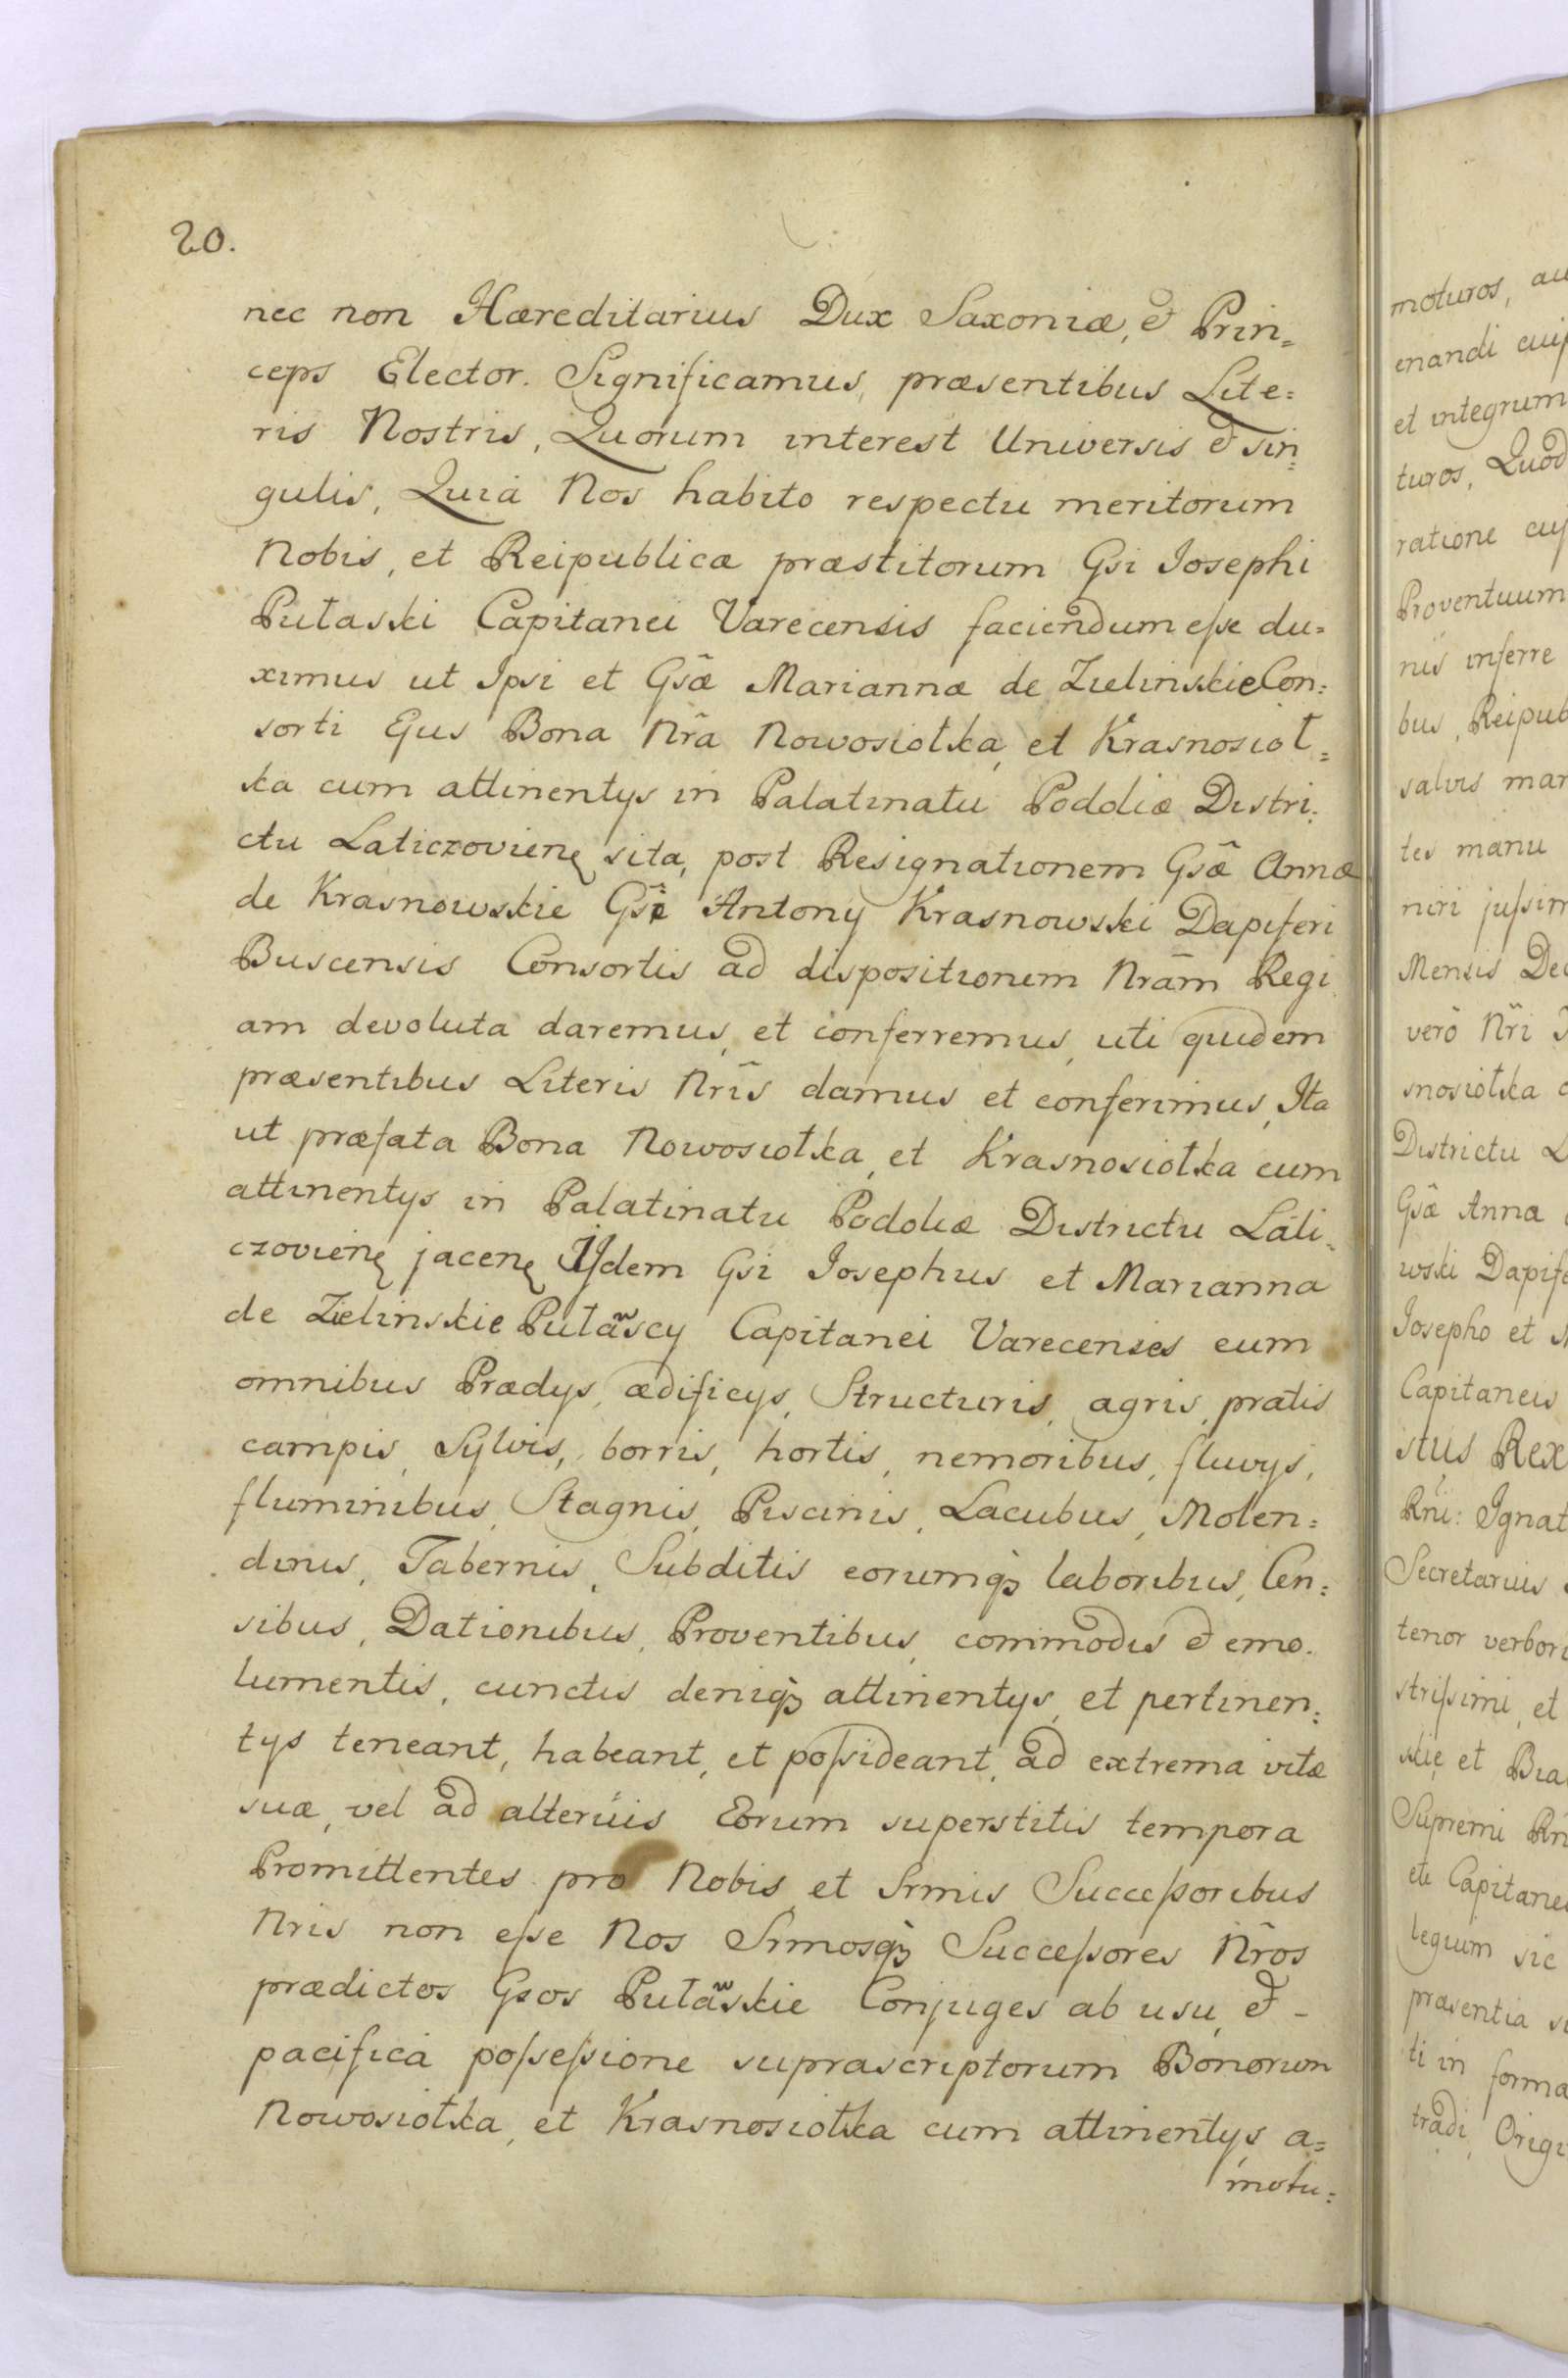 20.
nec non Hæreditarius Dux Saxoniæ, et Prin=
ceps Elector. Significamus, præsentibus Lite=
ris Nostris, Quorum interest Universis et sin=
gulis, Quia Nos habito respectu meritorum
Nobis, et Reipublicæ præstitorum Gsi Josephi
Pułaski Capitanei Varecensis faciendum esse du=
ximus ut Ipsi et Gsæ Mariannæ de Zielinskie Con=
sorti Ejus Bona Nr̃a Nowosiołka, et Krasnosioł=
ka cum attinentijs in Palatinatu Podoliæ Distri=
ctu Laticzovienę sita, post Resignationem Gsæ Annæ
de Krasnowskie Gsi Antonij Krasnowski Dapiferi
Buscensis Consortis ad dispositionem Nrãm Regi=
am devoluta daremus, et conferremus, uti quidem
præsentibus Literis Nrĩs damus et conferimus, Ita
ut præfata Bona Nowosiołka, et Krasnosiołka cum
attinentijs in Palatinatu Podoliæ Districtu Lati=
czovienę jacenę Ijdem Gsi Josephus et Marianna
de Zielinskie Pułascy Capitanei Varecenses cum
omnibus Prædijs, ædificijs, Structuris, agris, pratis
campis, Sylvis, borris, hortis, nemoribus, fluvijs,
fluminibus, Stagnis, Piscinis, Lacubus, Molen=
dinis, Tabernis, Subditis eorumq; laboribus, Cen=
sibus, Dationibus, Proventibus, commodis et emo=
lumentis, cunctis deniq; attinentijs, et pertinen=
tijs teneant, habeant, et possideant, ad extrema vitæ
suæ, vel ad alterius Eorum superstitis tempora
Promittentes pro Nobis et Srmis Successoribus
Nris non esse Nos Srmosq; Successores Nr̃os
prædictos Gsos Pułaskie Conjuges ab usu, et -
pacifica possessione suprascriptorum Bonorum
Nowosiołka, et Krasnosiołka cum attinentijs a=
motu=
moturos,
enandi
et integrum
turos, Quod
ratione
Proventuum
nis inferre
bus, Reipub
salvis
tes manu
niri jussim
Mensis Dec
verõ Nr̃i
snosiołka
Districtu
Gsæ Anna
wski Dapife
Josepho et
Capitaneis
stus Rex
Rni: Ignat
Secretarius
tenor
strissimi, et
skie et
Supremi
Capitane
legium sic
præsentia
ti in forma
tradi, Origi